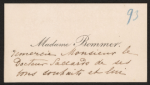 93
Madame Rommer.
remercie Monsieur le
Docteur de ses
bons souhaits et lui